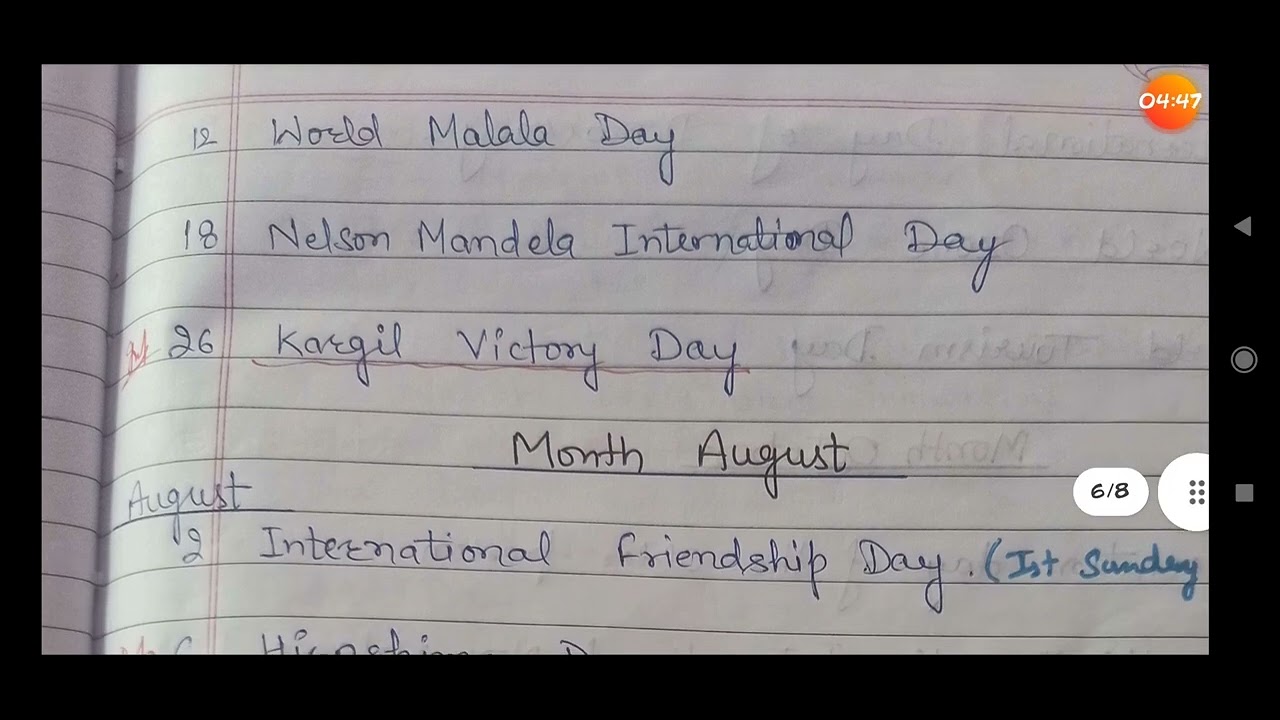 04:47
12 World Malala Day
18 Nelson Mandela International Day
26 Kargil Victory Day
Month August
6/8
August
2 International Friendship Day. (Ist Sunday
6 Hiroshima D